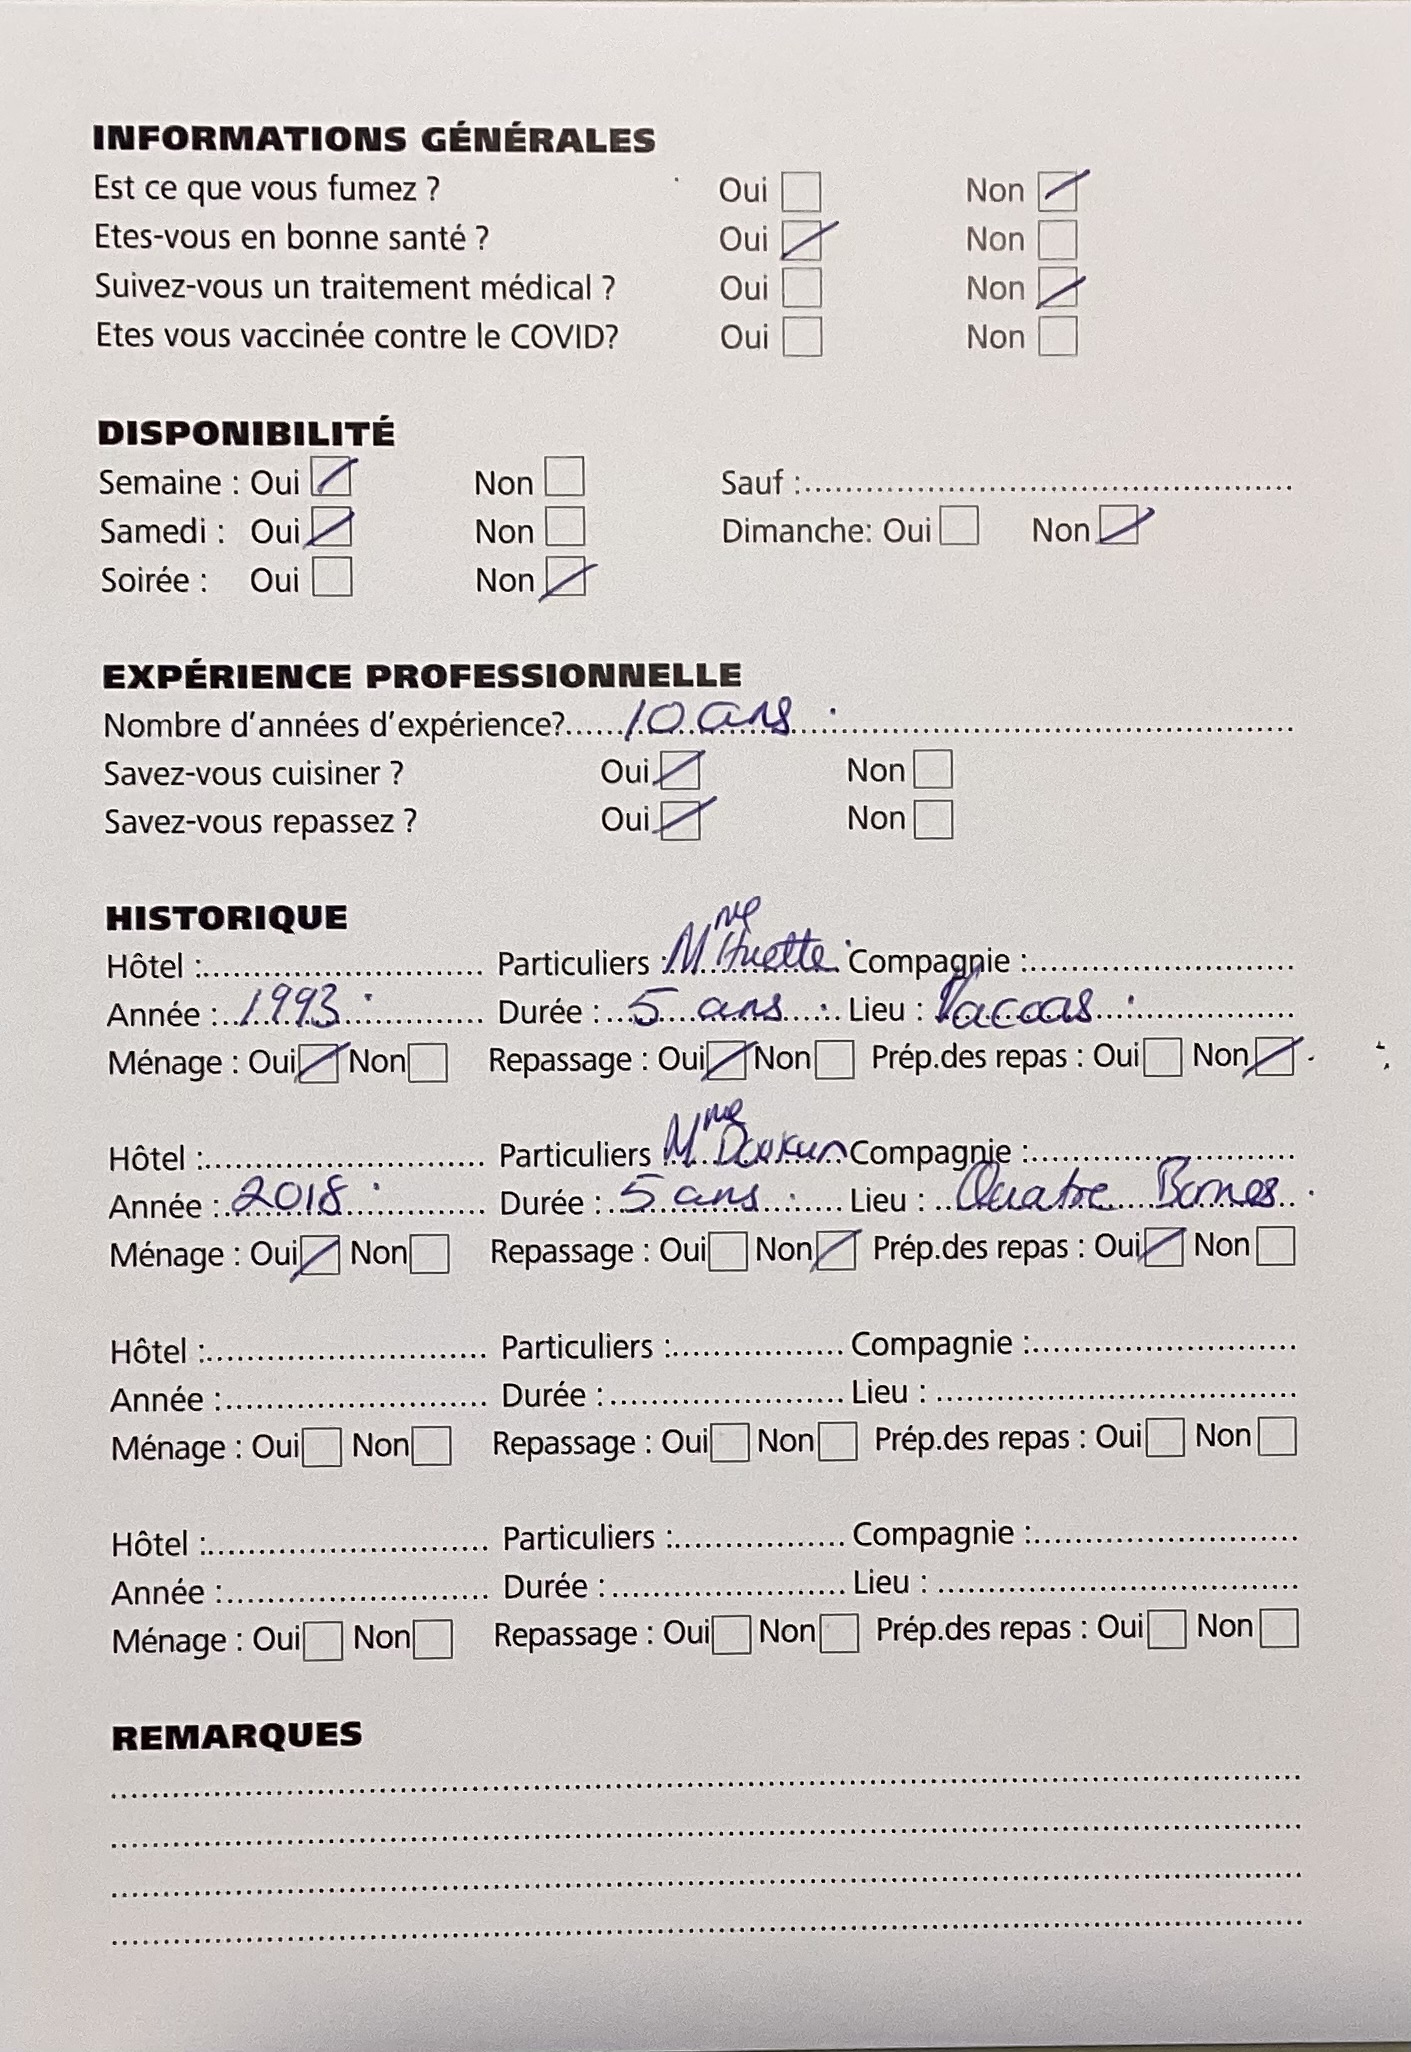 INFORMATIONS GÉNÉRALES
Est ce que vous fumez ? Oui ☐ Non ☑
Etes-vous en bonne santé ? Oui ☑ Non ☐
Suivez-vous un traitement médical ? Oui ☐ Non ☑
Etes vous vaccinée contre le COVID? Oui ☐ Non ☐
DISPONIBILITÉ
Semaine : Oui ☑ Non ☐ Sauf :..............................
Samedi : Oui ☑ Non ☐ Dimanche: Oui ☐ Non ☑
Soirée : Oui ☐ Non ☑
EXPÉRIENCE PROFESSIONNELLE
Nombre d'années d'expérience?......10 ans..............................
Savez-vous cuisiner ? Oui ☑ Non ☐
Savez-vous repassez ? Oui ☑ Non ☐
HISTORIQUE
Hôtel :.............................. Particuliers : Mme Huette Compagnie :..............................
Année : 1993 Durée : 5 ans Lieu : Vaccas
Ménage : Oui ☑ Non ☐ Repassage : Oui ☑ Non ☐ Prép.des repas : Oui ☐ Non ☑
Hôtel :.............................. Particuliers Mme Compagnie :..............................
Année : 2018 Durée : 5 ans Lieu : Quatre Bornes
Ménage : Oui ☑ Non ☐ Repassage : Oui ☐ Non ☑ Prép.des repas : Oui ☑ Non ☐
Hôtel :.............................. Particuliers :.................... Compagnie :..............................
Année :.............................. Durée :.............................. Lieu : ..............................
Ménage : Oui ☐ Non ☐ Repassage : Oui ☐ Non ☐ Prép.des repas : Oui ☐ Non ☐
Hôtel :.............................. Particuliers :.................... Compagnie :..............................
Année :.............................. Durée :.............................. Lieu : ..............................
Ménage : Oui ☐ Non ☐ Repassage : Oui ☐ Non ☐ Prép.des repas : Oui ☐ Non ☐
REMARQUES